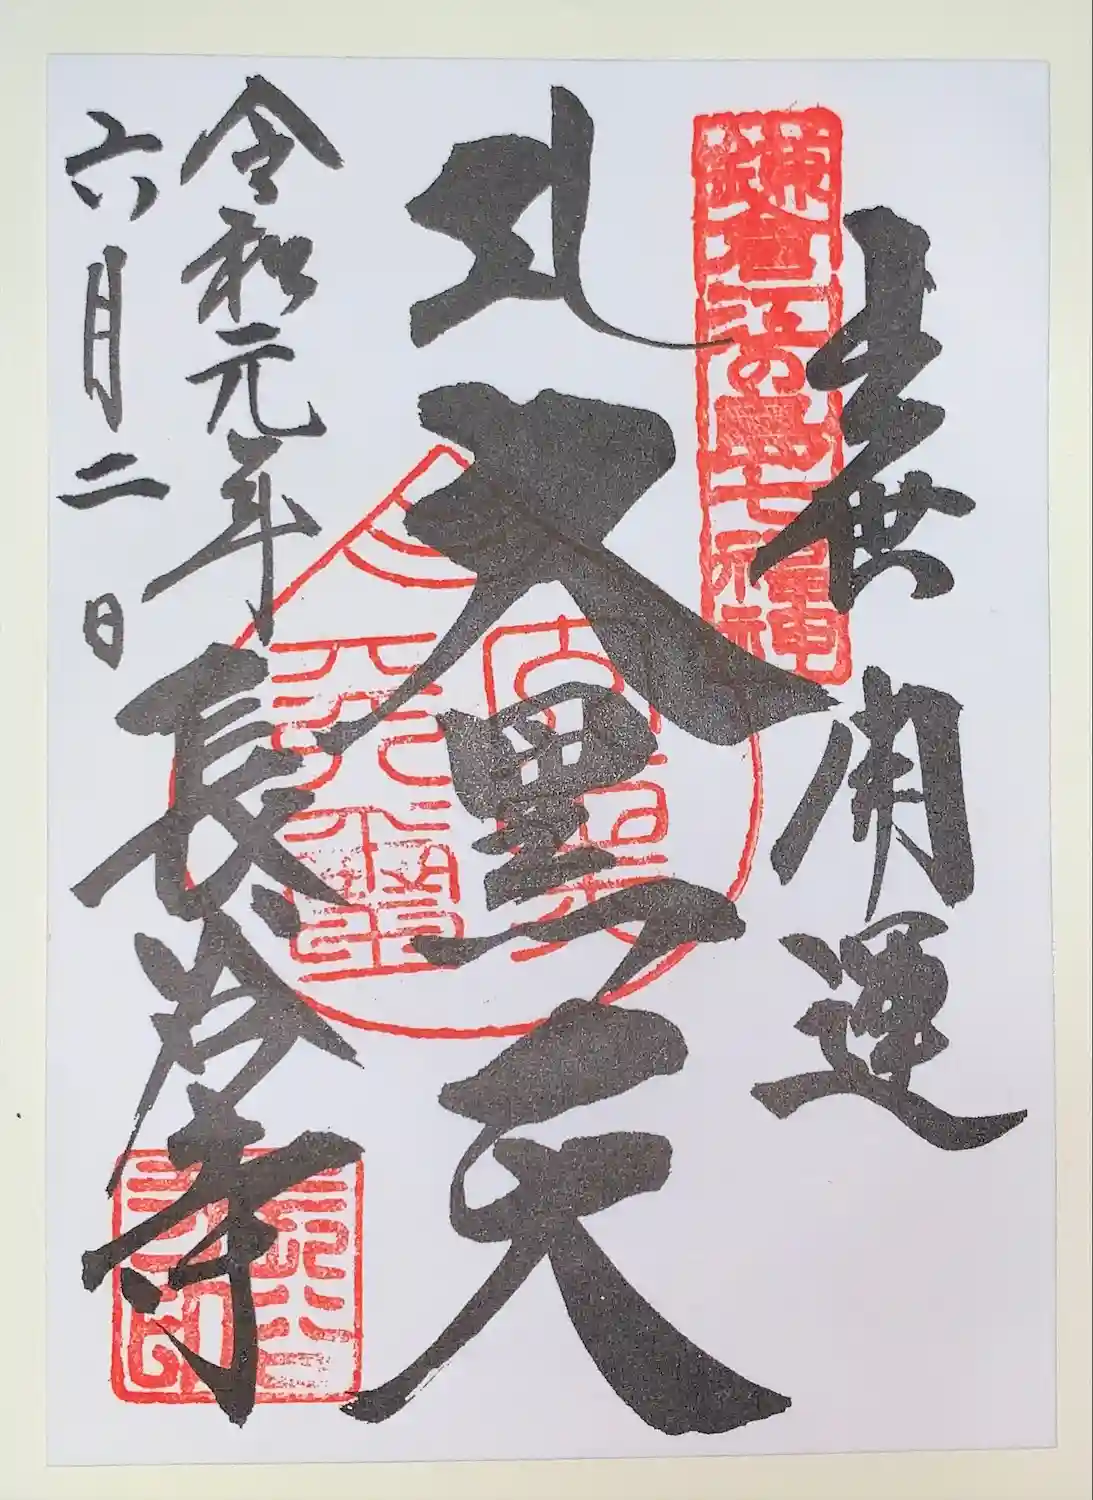 鎌倉江の島七福神
出世開運
大黒天
令和元年
六月二日
長谷寺